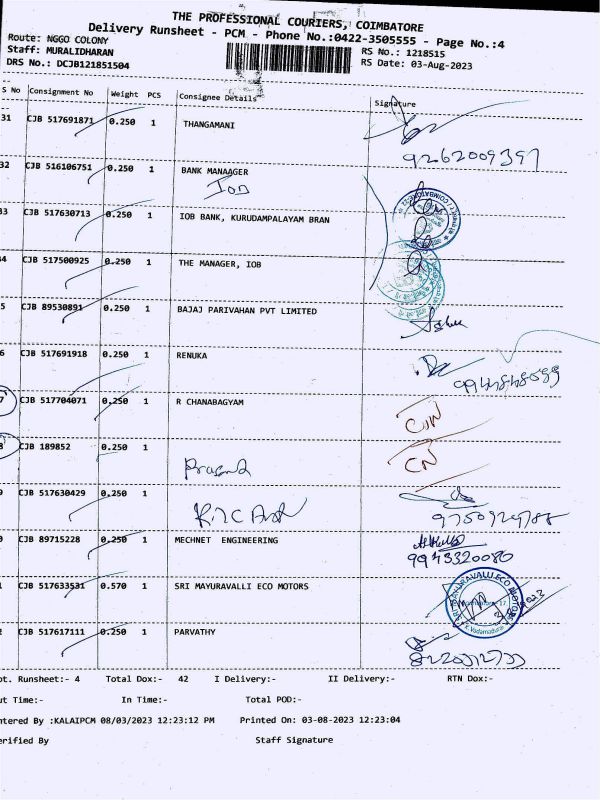 THE PROFESSIONAL COURIERS, COIMBATORE
Delivery Runsheet - PCM - Phone No.:0422-3505555 - Page No.:4
Route: NGGO COLONY
RS No.: 1218515
Staff: MURALIDHARAN
RS Date: 03-Aug-2023
DRS No.: DCJB121851504
S No Consignment No Weight PCS Consignee Details Signature
31 CJB 517691871 0.250 1 THANGAMANI
9262009397
32 CJB 516106751 0.250 1 BANK MANAAGER
IOB
33 CJB 517630713 0.250 1 IOB BANK, KURUDAMPALAYAM BRAN
4 CJB 517500925 0.250 1 THE MANAGER, IOB
5 CJB 89530891 0.250 1 BAJAJ PARIVAHAN PVT LIMITED
6 CJB 517691918 0.250 1 RENUKA
7 CJB 517704071 0.250 1 R CHANABAGYAM
CN
8 CJB 189852 0.250 1
CN
9 CJB 517630429 0.250 1
0 CJB 89715228 0.250 1 MECHNET ENGINEERING
9943320080
1 CJB 517633531 0.570 1 SRI MAYURAVALLI ECO MOTORS
SRI MAYURAVALLI ECO MOTORS
K.Vadamadurai
2 CJB 517617111 0.250 1 PARVATHY
pt. Runsheet:- 4 Total Dox:- 42 I Delivery:- II Delivery:- RTN Dox:-
ut Time:- In Time:- Total POD:-
ntered By :KALAIPCM 08/03/2023 12:23:12 PM Printed On: 03-08-2023 12:23:04
erified By Staff Signature